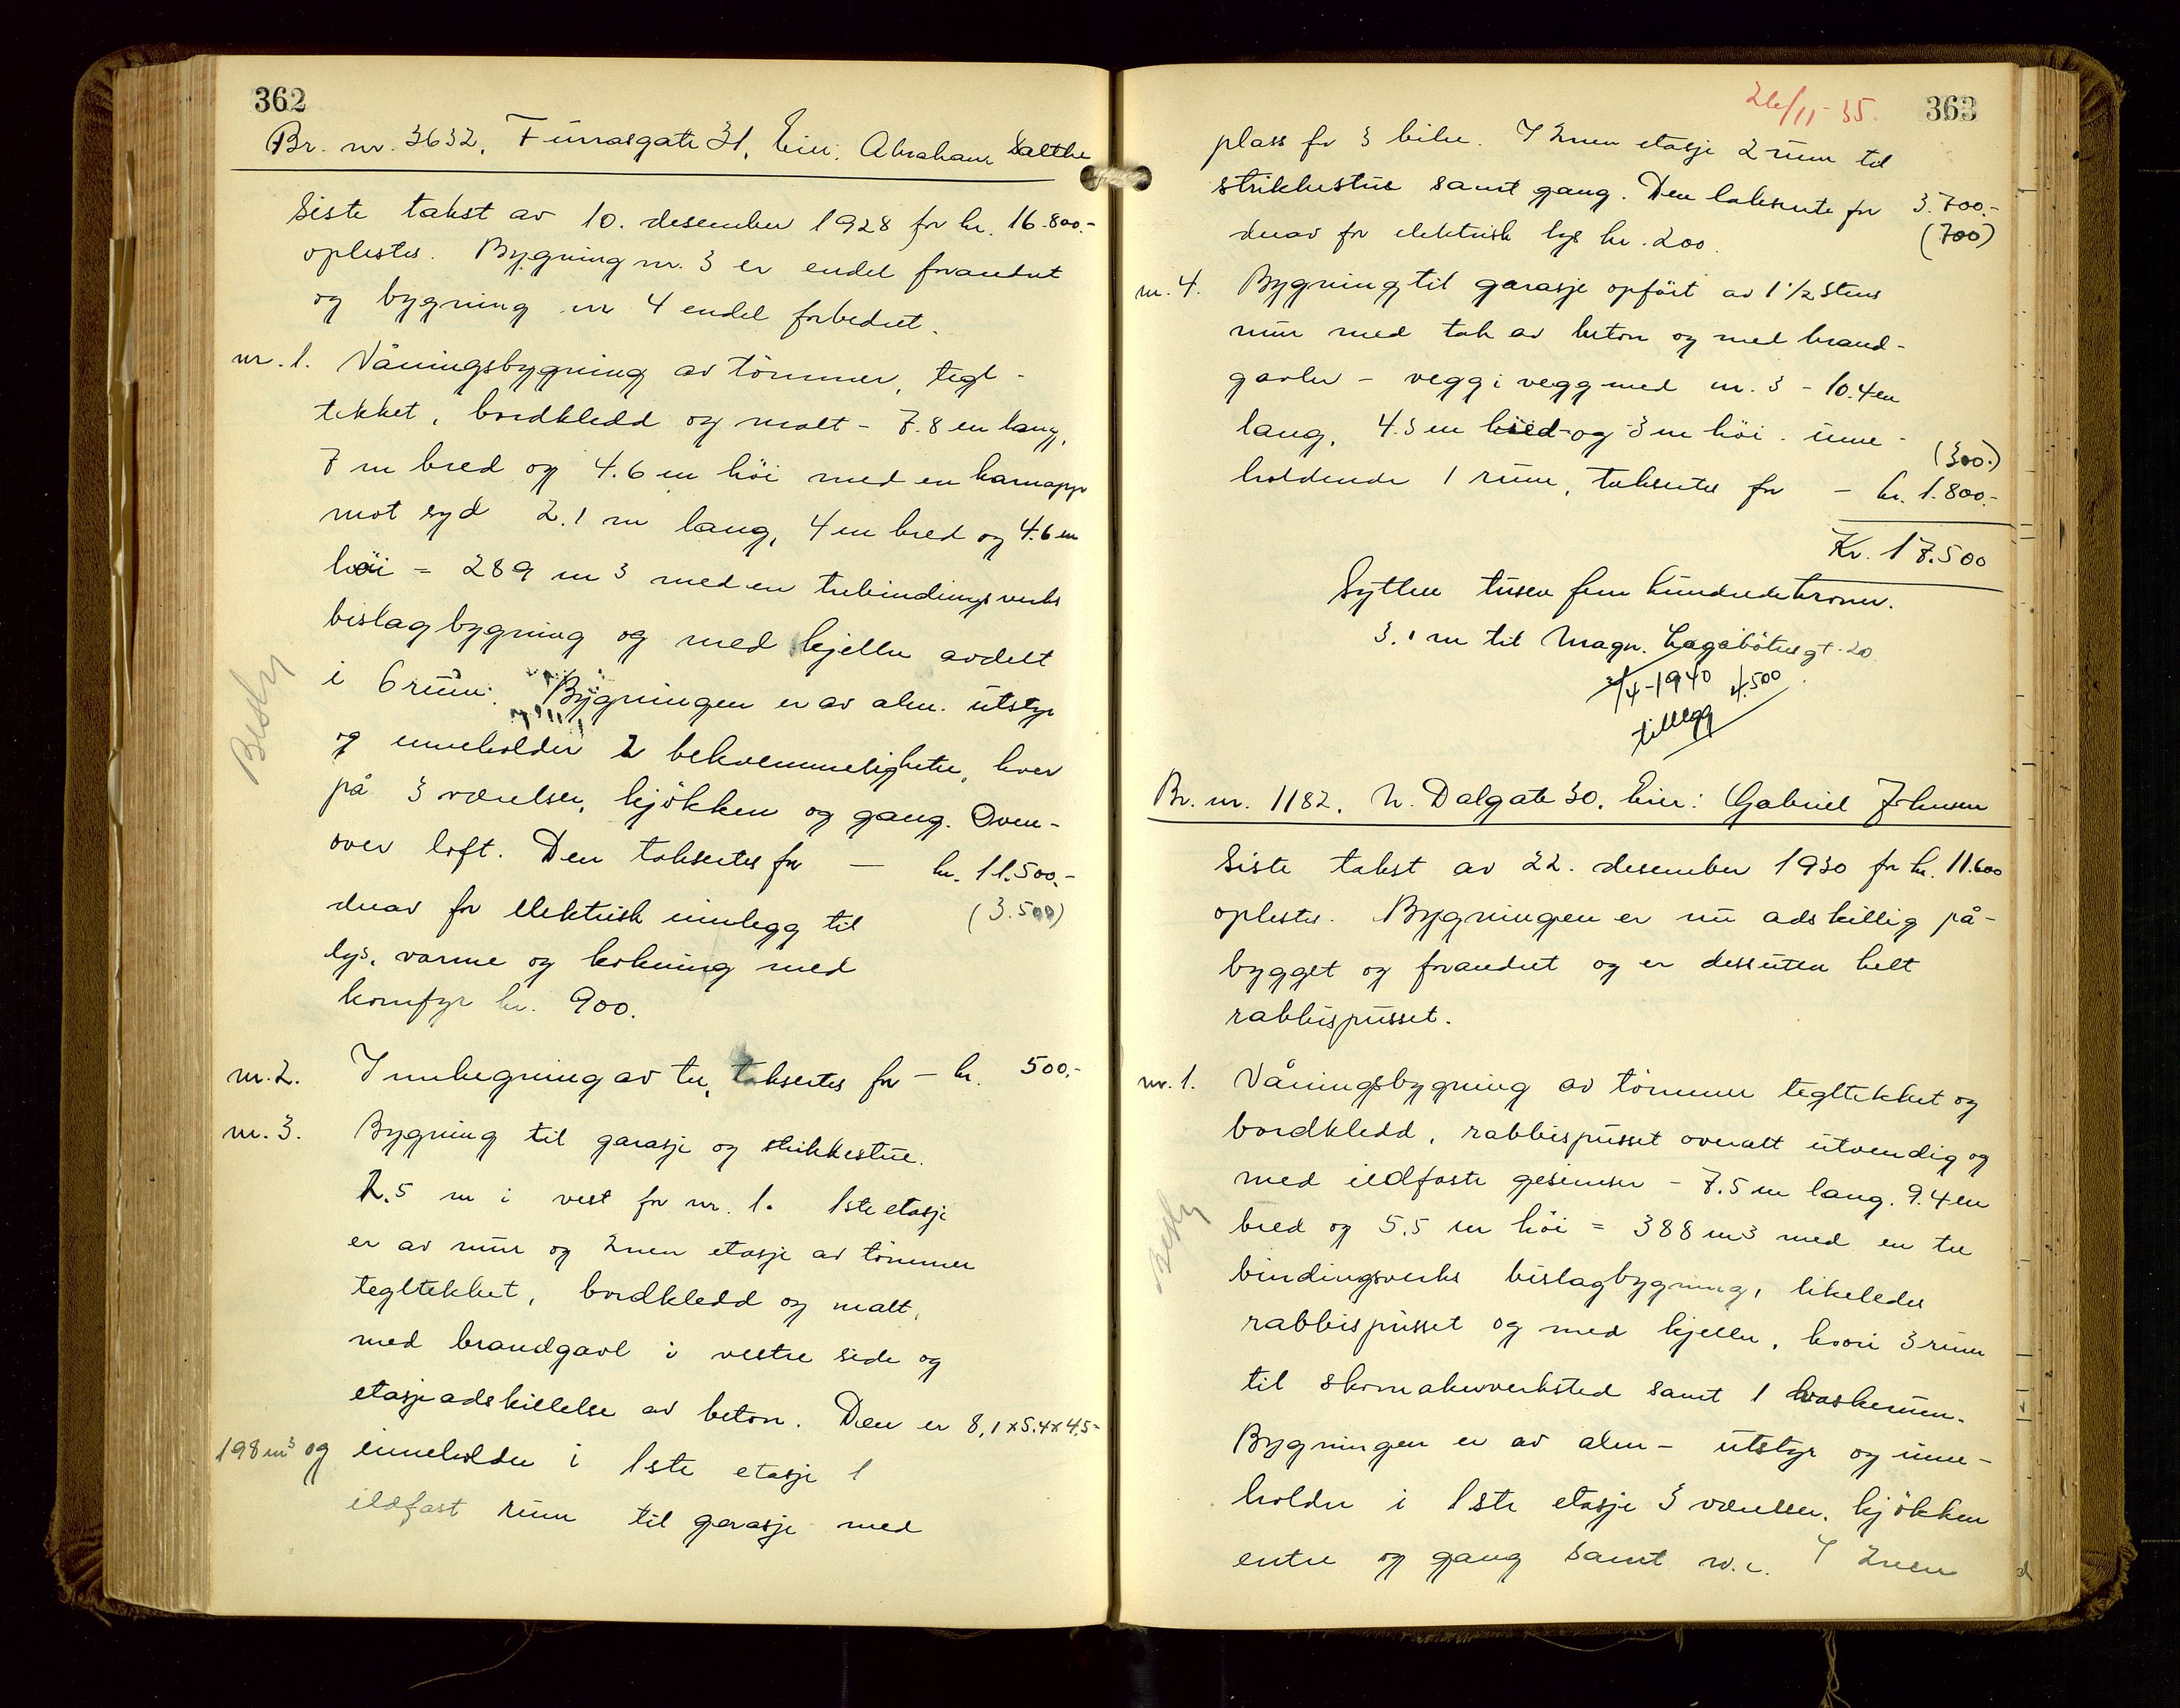 362
Br. nr. 3632, Furrasgate 31, Eier: Abraham Salthe
Siste takst av 10. desember 1928 for kr. 16.800.-
oplestes. Bygning nr. 3 er endel forandret
og bygning nr 4 endel forbedret.
nr. 1. Våningsbygning av tömmer, tegl-
tekket, bordkledd og malt - 7.8 m lang,
7 m bred og 4.6 m höi med en karnapp
mot syd 2.1 m lang, 4 m bred og 4.6 m
höi = 289 m3 med en trebindingsverks
bislagbygning og med kjeller avdelt
i 6 rum. Bygningen er av alm. utstyr
og inneholder 2 bekvemmeligheter, hver
på 3 værelser, kjökken og gang. Oven-
over loft. Den taksertes for — kr. 11.500.-
derav for elektrisk innlegg til (3.500)
lys, varme og kokning med
komfyr kr. 900.
nr. 2. Innhegning av tre, taksertes for - kr. 500.-
nr. 3. Bygning til garasje og strikkestue.
2.5 m i vest for nr. 1. 1ste etasje
er av mur og 2nen etasje av tömmer
tegltekket, bordkledd og malt,
med brandgavl i vestre side og
etasjeadskillelse av beton. Den er 8,1x5.4x4.5=
198 m3 og inneholder i 1ste etasje 1
ildfast rum til garasje med
Besky
26/11-35. 363
plass for 3 biler. I 2nen etasje 2 rum til
strikkestue samt gang. Den taksertes for 3.700.-
derav for elektrisk lys kr. 200. (700)
nr. 4. Bygning til garasje opfört av 1 1/2 stens
mur med tak av beton og med brand-
gavler - vegg i vegg med nr. 3 - 10.4 m
lang, 4.5 m bred og 3 m höi. inne-
holdende 1 rum, taksertes for - kr. 1.800.-
(300.)
Kr. 17.500
Sytten tusen fem hundrede kroner.
3.1 m til Magn. Lagabötersgt. 20
/4-1940 4.500
tillegg
Br. nr. 1182, N. Dalgate 30, Eier: Gabriel Johnsen
Siste takst av 22. desember 1930 for kr. 11.600
oplestes. Bygningen er nu adskillig på-
bygget og forandret og er dessuten helt
rabbispusset.
nr. 1. Våningsbygning av tömmer tegltekket og
bordkledd, rabbispusset overalt utvendig og
med ildfaste gesimser - 7.5 m lang. 9.4 m
bred og 5.5 m höi = 388 m3 med en tre
bindingsverks bislagbygning, likeledes
rabbispusset og med kjeller, hvori 3 rum
til skomakerverksted samt 1 vaskerum.
Bygningen er av alm- utstyr og inne-
holder i 1ste etasje 3 værelser, kjökken
entre og gang samt w.c. I 2nen
Besky